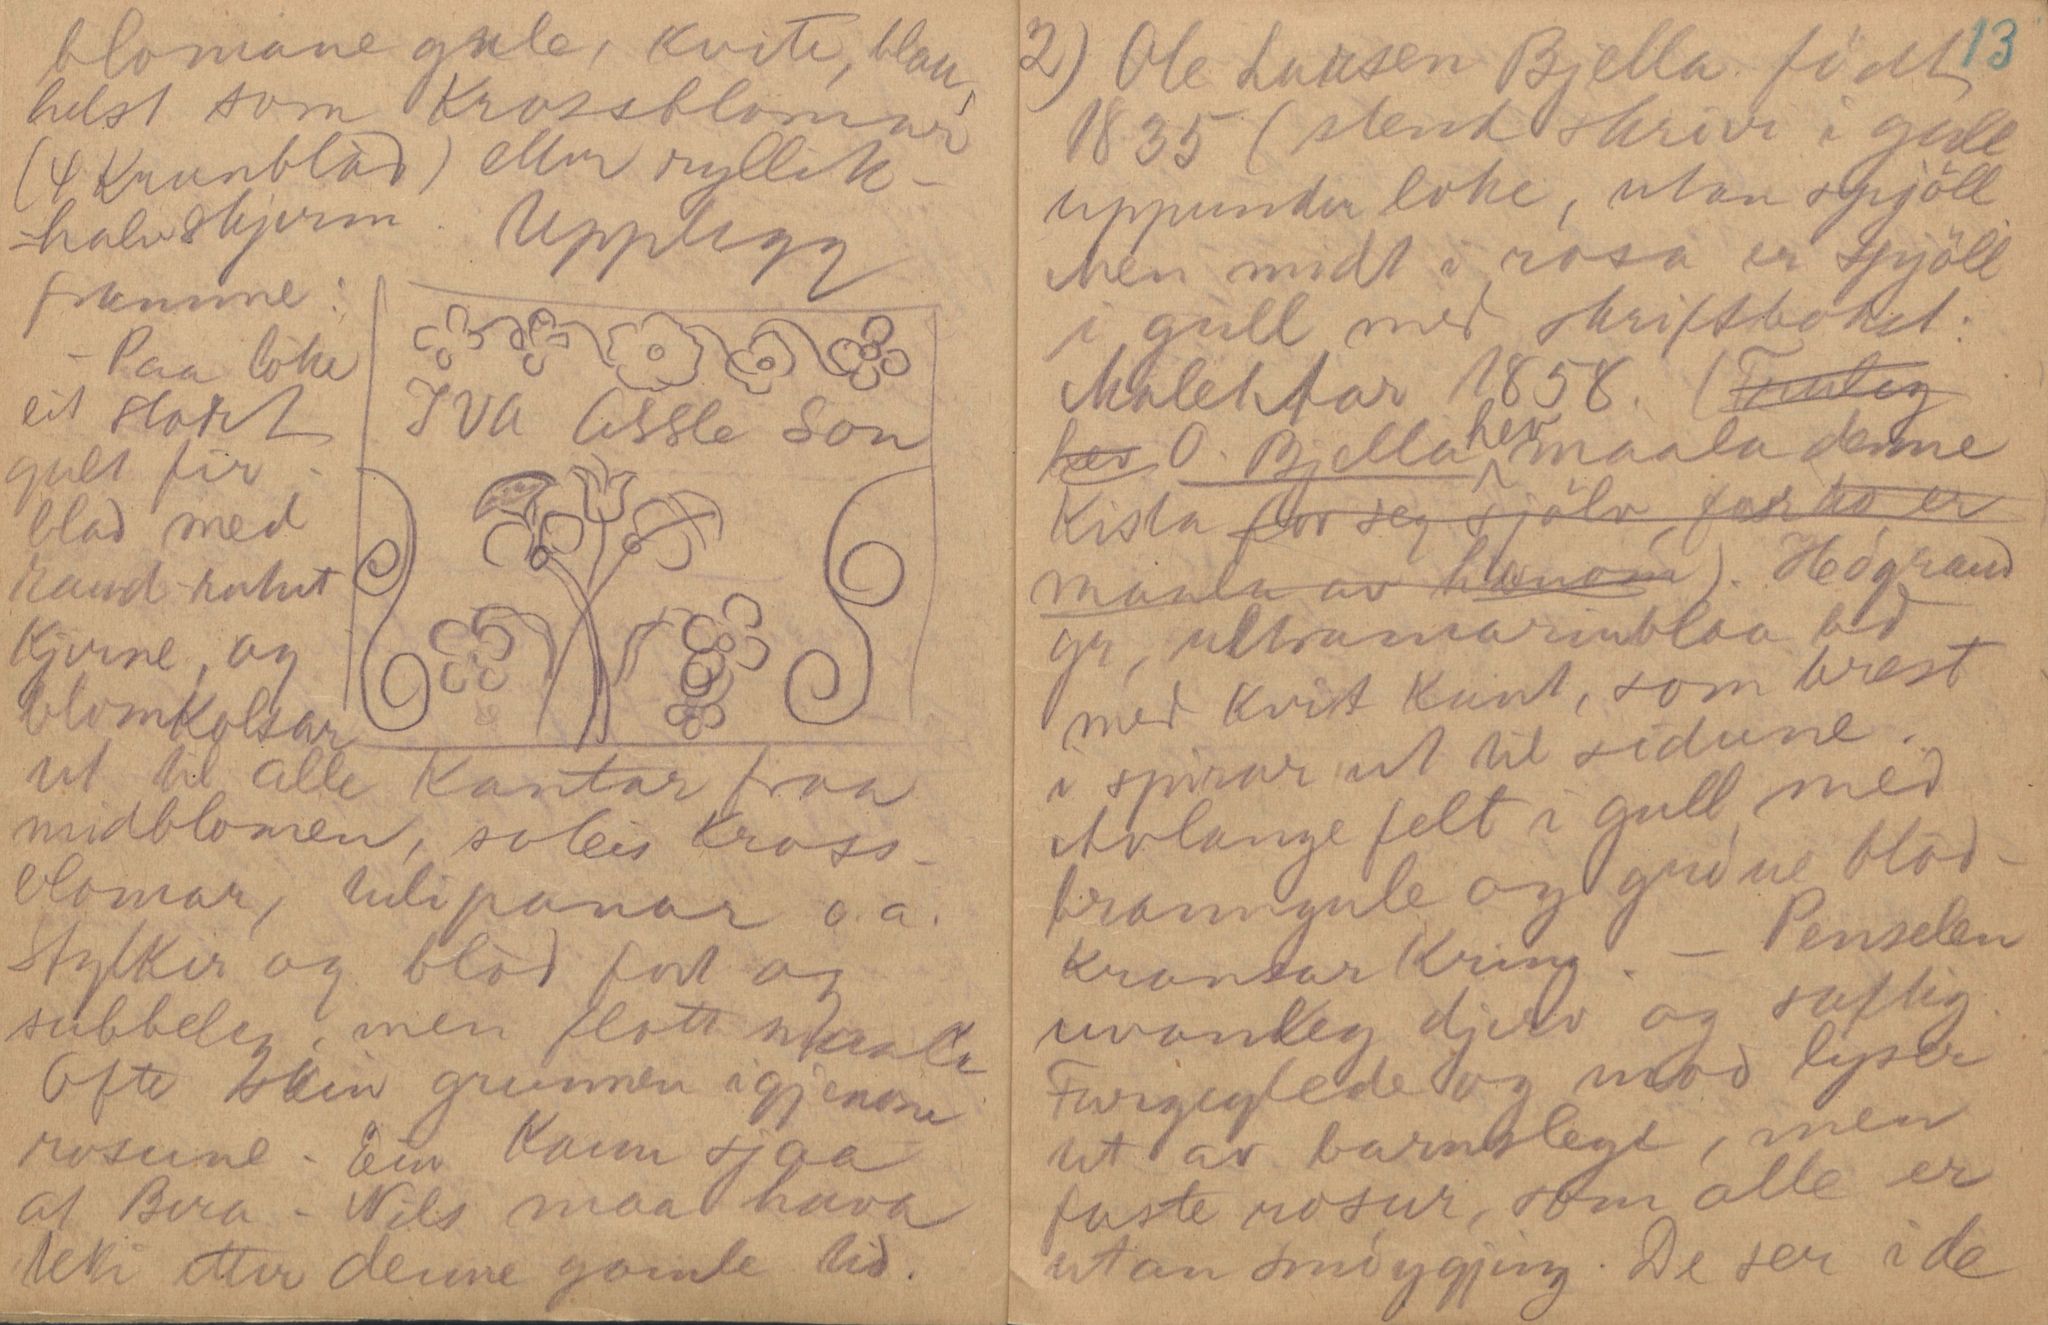 blomane gule, kvite, blaa,
helst som Krossblomar
(4 Krunblad) eller ryllik-
=halvskjerm. Upplegg
framme:
IVA ASSLE SON
- Paa loke
eit stort
gult fir-
blad med
raud-rutut
Kjerne, og
blomkolsar
ut til alle Kantar fraa
midblomen, soleis Kross-
blomar, tulipanar o.a.
Stylker og blad fort og
subbeleg, men flott maala
Ofte skin grunnen igjenom
rosune. Ein Kann sjaa
at Bera-Nils maa hava
teki etter denne gamle tid.
2) Ole Larsen Bjella. födt 13
1835 (stend skrive i gull
uppunder loke, utan spjöll
Men midt i rosa er spjöll
i gull med skriftbokst:
Malet Aar 1858. (Truleg
hev O. Bjella hev maala denne
Kista for seg sjölv, for ho er
maala av honom). Högraud
gr, ultramarinblaa bd
med Kvit Kant, som brest
i spirar ut til sidune.
Avlange felt i gull med
branngule og gröne blad-
kransar Kring. - Penselen
uvanleg djerv og saftig.
Fargeglede og mod lyser
ut av barnslege, men
faste rosur, som alle er
utan smöygjing. De ser i de